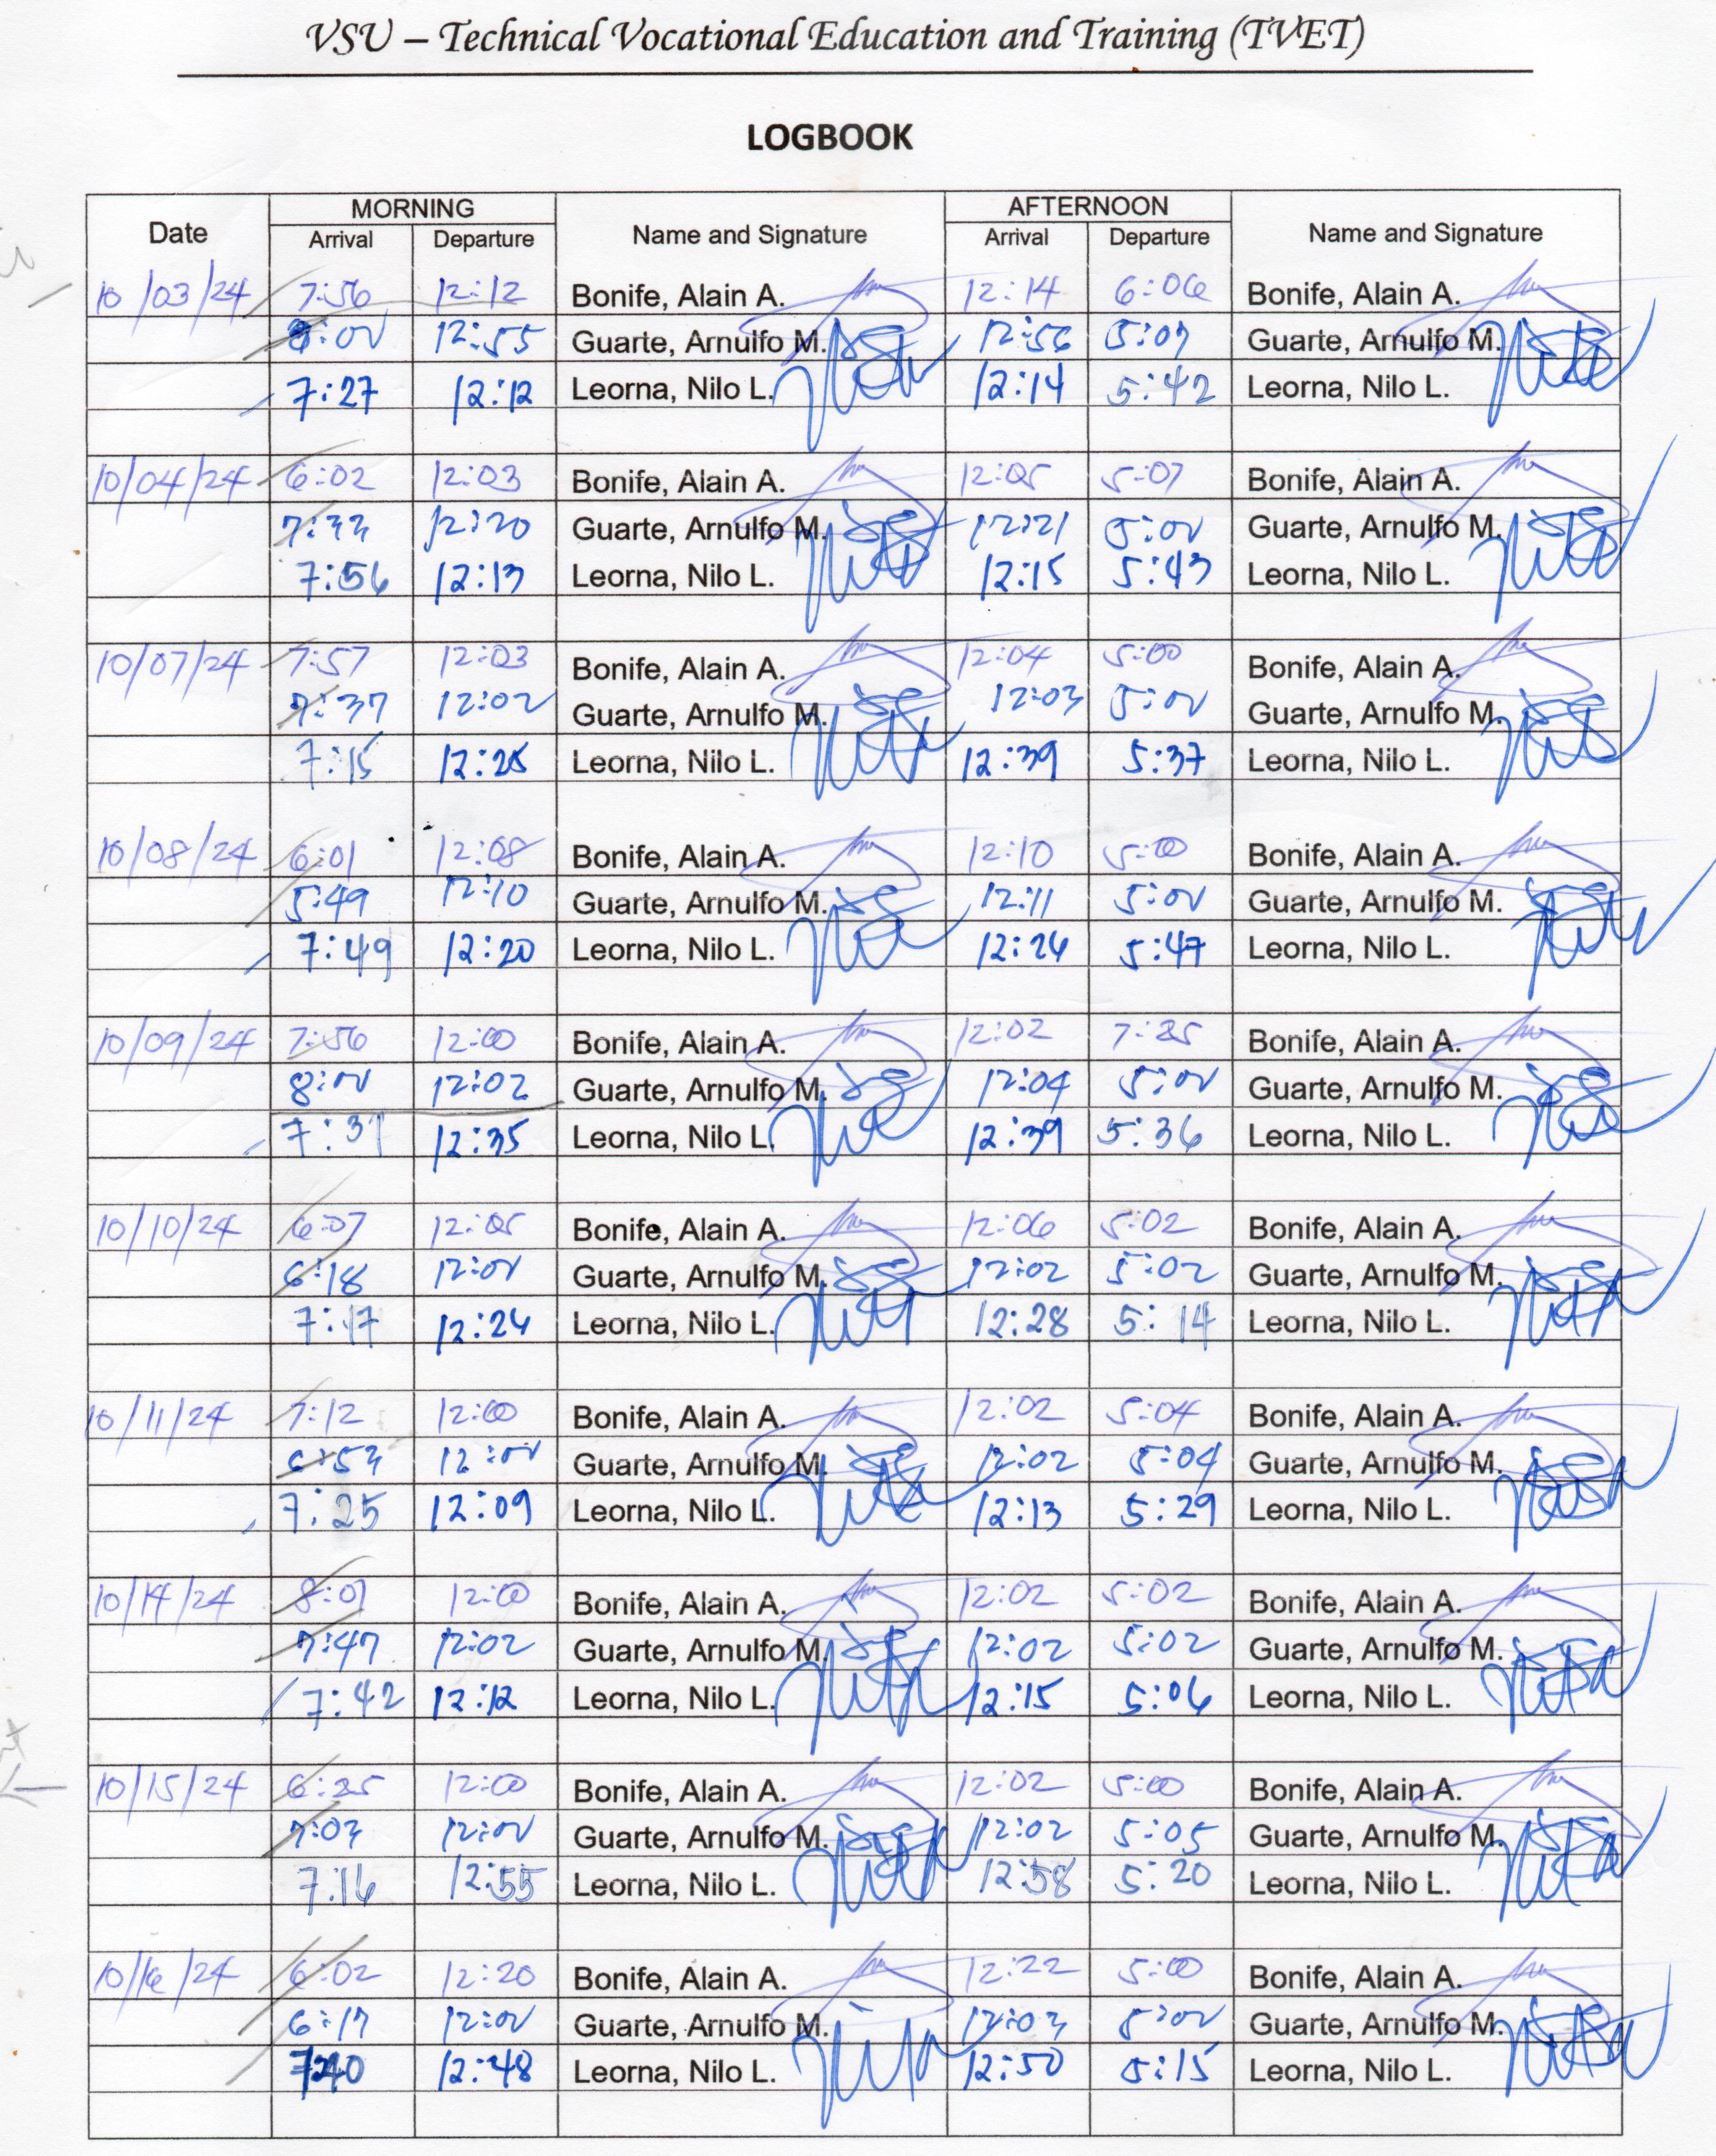 VSU – Technical Vocational Education and Training (TVET)
LOGBOOK
Date MORNING Name and Signature AFTERNOON Name and Signature
Arrival Departure Arrival Departure
10/03/24 7:56 12:12 Bonife, Alain A. 12:14 6:06 Bonife, Alain A.
8:00 12:55 Guarte, Arnulfo M. 12:56 5:07 Guarte, Arnulfo M.
7:27 12:12 Leorna, Nilo L. 12:14 5:42 Leorna, Nilo L.
10/04/24 6:02 12:03 Bonife, Alain A. 12:05 5:07 Bonife, Alain A.
7:33 12:20 Guarte, Arnulfo M. 12:21 5:00 Guarte, Arnulfo M.
7:56 12:13 Leorna, Nilo L. 12:15 5:43 Leorna, Nilo L.
10/07/24 7:57 12:03 Bonife, Alain A. 12:04 5:00 Bonife, Alain A.
7:37 12:02 Guarte, Arnulfo M. 12:03 5:00 Guarte, Arnulfo M.
7:15 12:25 Leorna, Nilo L. 12:39 5:37 Leorna, Nilo L.
10/08/24 6:01 12:08 Bonife, Alain A. 12:10 5:00 Bonife, Alain A.
5:49 12:10 Guarte, Arnulfo M. 12:11 5:00 Guarte, Arnulfo M.
7:49 12:20 Leorna, Nilo L. 12:24 5:47 Leorna, Nilo L.
10/09/24 7:56 12:00 Bonife, Alain A. 12:02 7:25 Bonife, Alain A.
8:00 12:02 Guarte, Arnulfo M. 12:04 5:00 Guarte, Arnulfo M.
7:31 12:35 Leorna, Nilo L. 12:39 5:36 Leorna, Nilo L.
10/10/24 6:07 12:05 Bonife, Alain A. 12:06 5:02 Bonife, Alain A.
6:18 12:00 Guarte, Arnulfo M. 12:02 5:02 Guarte, Arnulfo M.
7:17 12:24 Leorna, Nilo L. 12:28 5:14 Leorna, Nilo L.
10/11/24 7:12 12:00 Bonife, Alain A. 12:02 5:04 Bonife, Alain A.
6:53 12:00 Guarte, Arnulfo M. 12:02 5:04 Guarte, Arnulfo M.
7:25 12:09 Leorna, Nilo L. 12:13 5:29 Leorna, Nilo L.
10/14/24 8:01 12:00 Bonife, Alain A. 12:02 5:02 Bonife, Alain A.
7:47 12:02 Guarte, Arnulfo M. 12:02 5:02 Guarte, Arnulfo M.
7:42 12:12 Leorna, Nilo L. 12:15 5:06 Leorna, Nilo L.
10/15/24 6:25 12:00 Bonife, Alain A. 12:02 5:00 Bonife, Alain A.
7:03 12:00 Guarte, Arnulfo M. 12:02 5:05 Guarte, Arnulfo M.
7:16 12:55 Leorna, Nilo L. 12:58 5:20 Leorna, Nilo L.
10/16/24 6:02 12:20 Bonife, Alain A. 12:22 5:00 Bonife, Alain A.
6:17 12:00 Guarte, Arnulfo M. 12:03 5:00 Guarte, Arnulfo M.
7:40 12:48 Leorna, Nilo L. 12:50 5:15 Leorna, Nilo L.